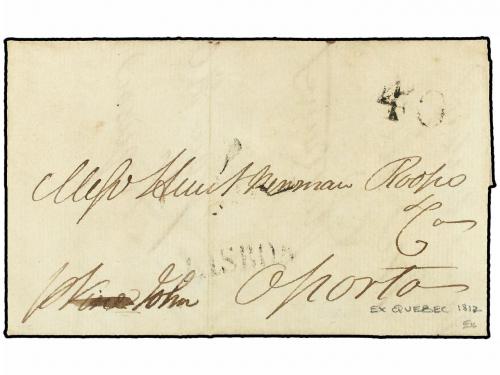 40
Messrs Hunt Newman Roope
& Co
LISBOA
John Oporto
EX QUEBEC 1812